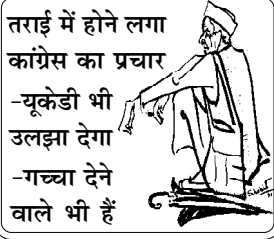 तराई में होने लगा
कांग्रेस का प्रचार
-यूकेडी भी
उलझा देगा
-गच्चा देने
वाले भी हैं